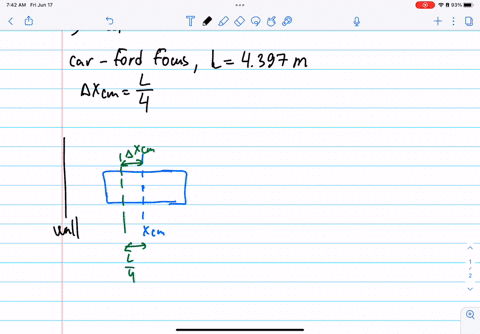 7:42 AM Fri Jun 17
93%
car - ford focus, L = 4.397 m
Δxcm = L/4
Δxcm
wall
xcm
L/4
1
2